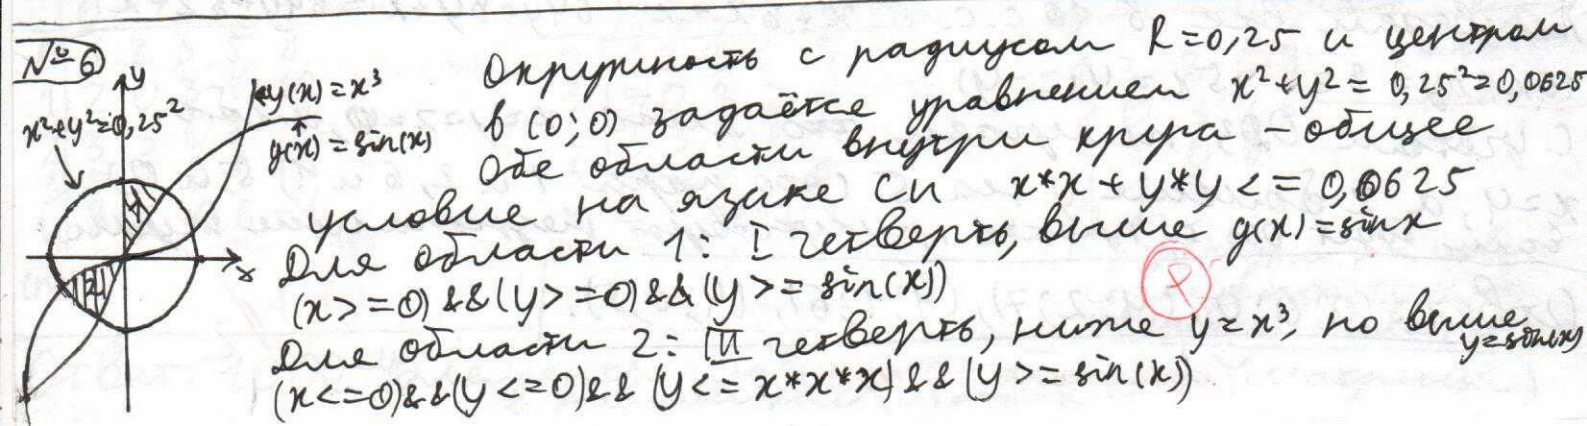 №6
y
y(x) = x³
x²+y²=0,25²
g(x) = sin(x)
x
1
2
Окружность с радиусом R=0,25 и центром
в (0;0) задаётся уравнением x²+y² = 0,25²=0,0625
Обе области внутри круга – общее
условие на языке Си x*x + y*y <= 0,0625
Для области 1: I четверть, выше g(x)=sinx
(x>=0)&&(y>=0)&&(y>=sin(x))
Для области 2: III четверть, ниже y=x³, но выше
y=sin(x)
(x<=0)&&(y<=0)&&(y<=x*x*x)&&(y>=sin(x))